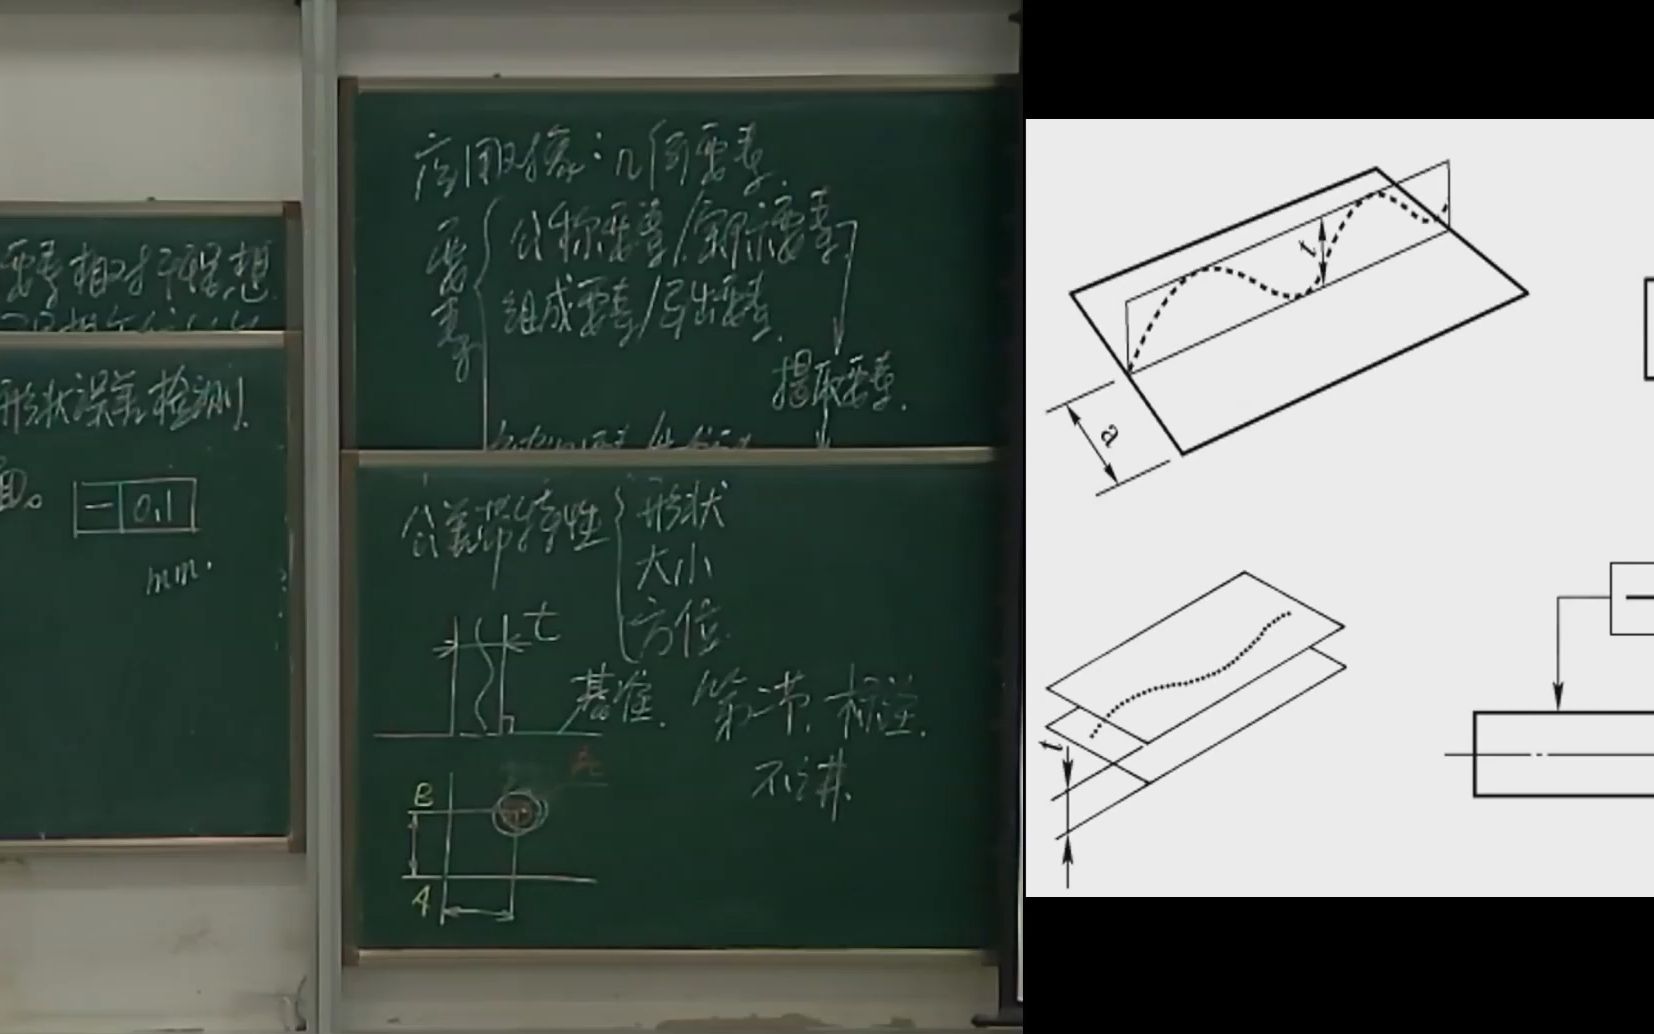 要素相对于理想
形状误差检测.
面。
— 0.1
mm.
应用对象:几何要素.
要素
公称要素/实际要素
组成要素/导出要素.
提取要素.
公差带特性
形状
大小
方位
t
基准.
第二节.标注.
不讲.
B
A
t
a
t